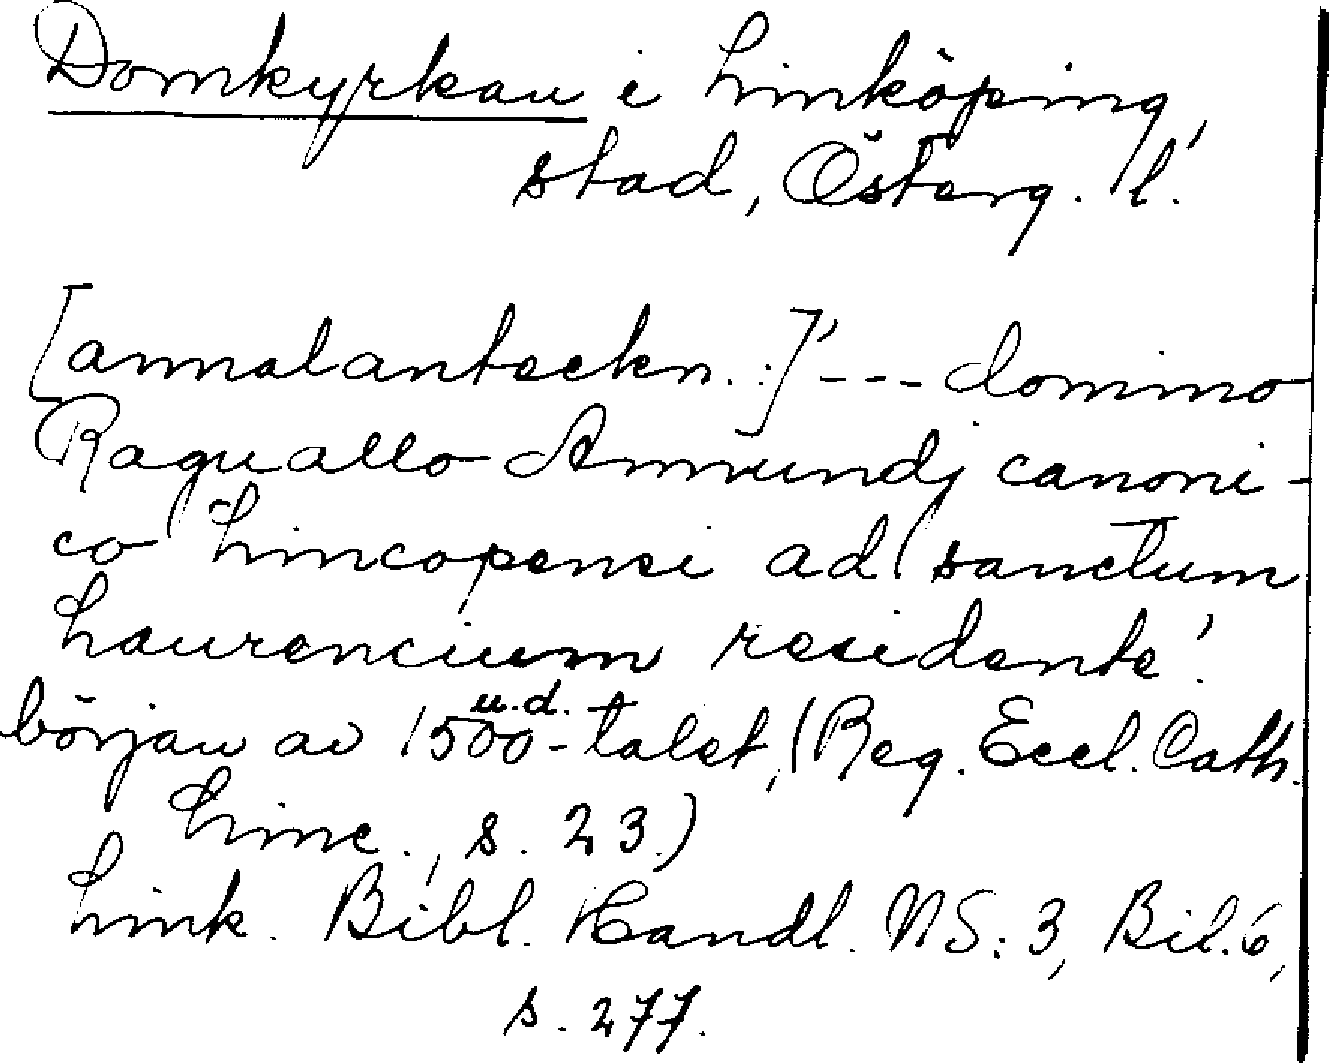 Domkyrkan i Linköping,
stad, Österg. l.
[annalanteckn.:]' --- domino
Raguallo Amundj canoni-
co Lincopensi ad sanctum
Laurencium residente'.
u.d.
början av 1500-talet, (Reg. Eccl. Cath.
Linc., s. 23.)
Link. Bibl. Handl. NS: 3, Bil. 6,
s. 277.